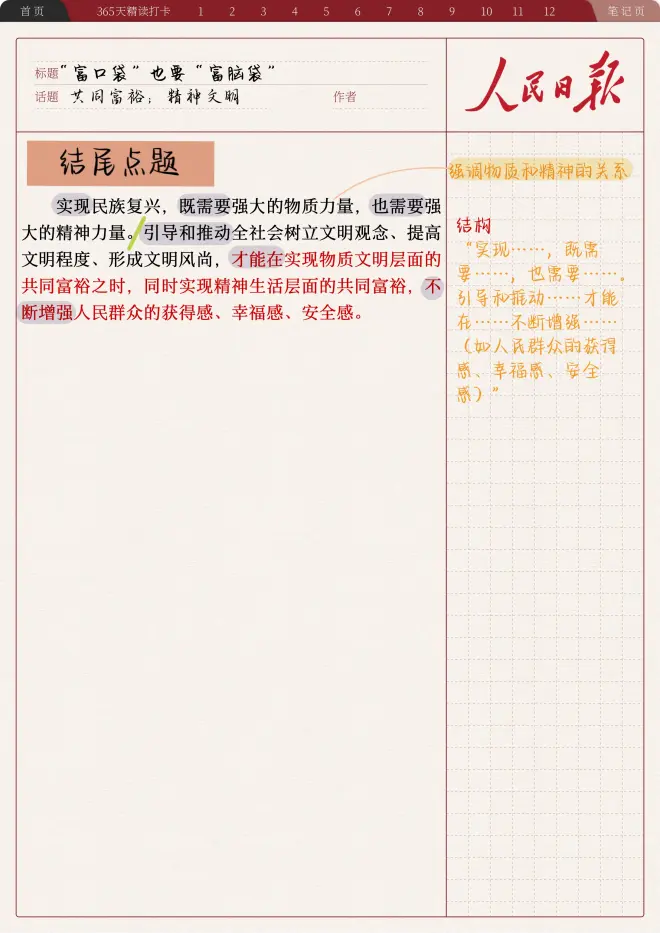 首页 365天精读打卡 1 2 3 4 5 6 7 8 9 10 11 12 笔记页
标题 “富口袋”也要“富脑袋”
话题 共同富裕；精神文明 作者
人民日报
结尾点题
实现民族复兴，既需要强大的物质力量，也需要强
大的精神力量。引导和推动全社会树立文明观念、提高
文明程度、形成文明风尚，才能在实现物质文明层面的
共同富裕之时，同时实现精神生活层面的共同富裕，不
断增强人民群众的获得感、幸福感、安全感。
强调物质和精神的关系
结构
“实现……，既需
要……，也需要……。
引导和推动……才能
在……不断增强……
（如人民群众的获得
感、幸福感、安全
感）”